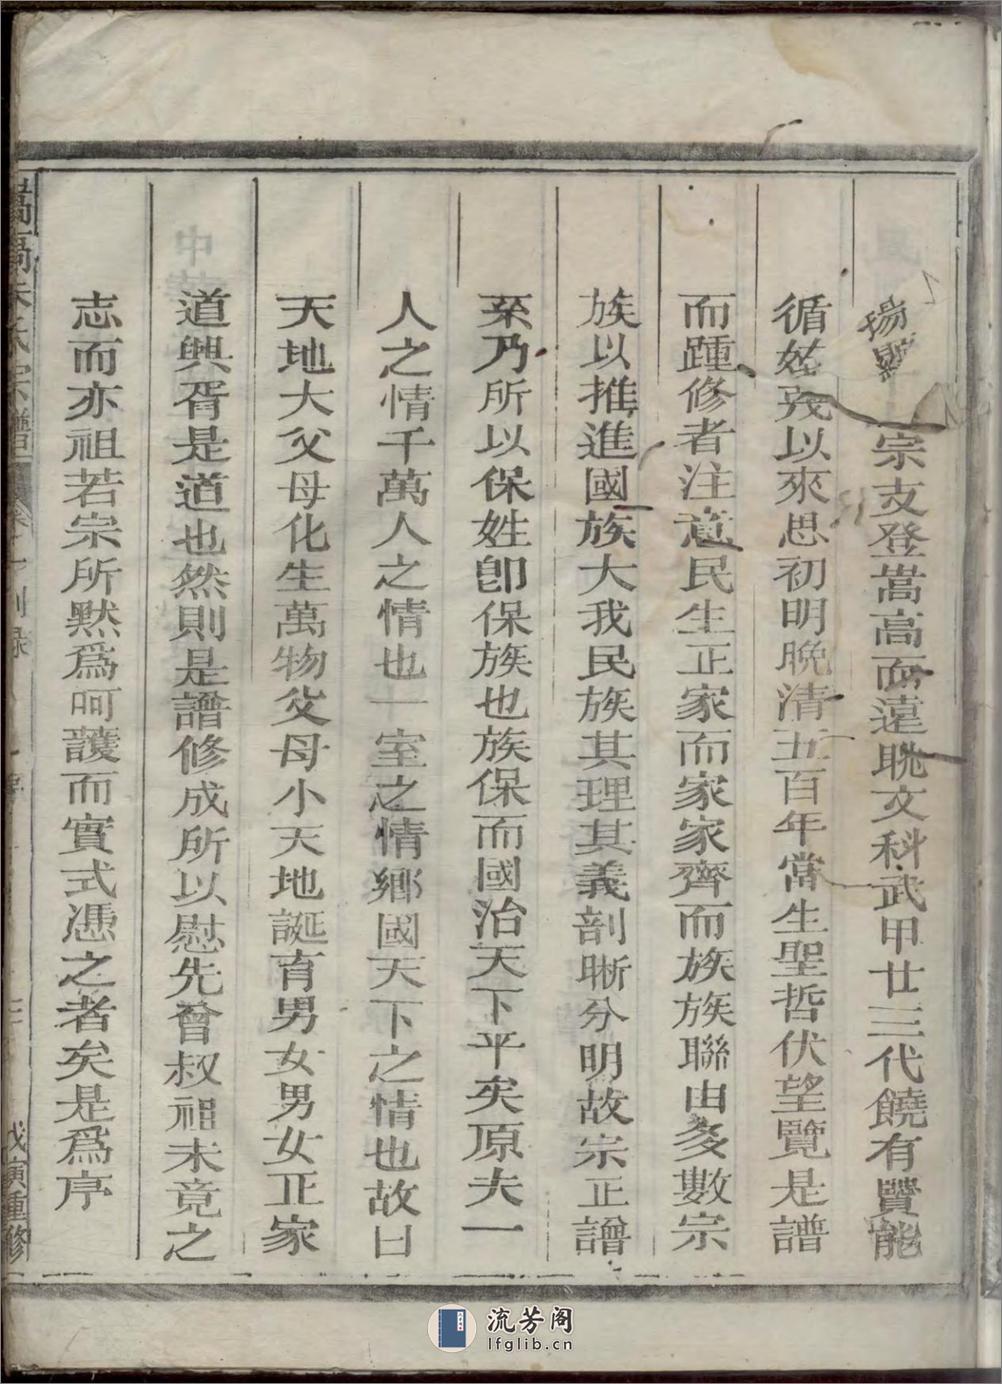 宗支登嵩高而遠眺文科武甲廿三代饒有賢能
循茲以來思初明晚清五百年當生聖哲伏望覽是譜
而踵修者注意民生正家而家家齊而族族聯由多數宗
族以推進國族大我民族其理其義剖晰分明故宗正譜
系乃所以保姓卽保族也族保而國治天下平矣原夫一
人之情千萬人之情也一室之情鄉國天下之情也故曰
天地大父母化生萬物父母小天地誕育男女男女正家
道興胥是道也然則是譜修成所以慰先曾叔祖未竟之
志而亦祖若宗所默爲呵護而實式憑之者矣是爲序
嵩高朱氏宗譜
重修
流芳阁
lfglib.cn